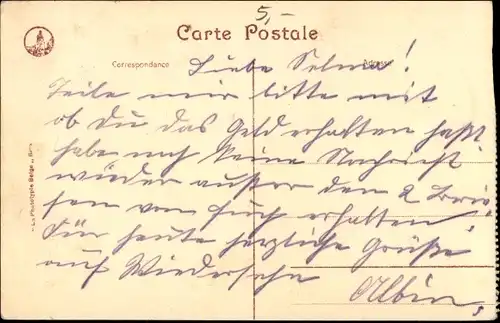 5,-
Carte Postale
Correspondance
Adresse
Liebe Selma!
Teile mir bitte mit
ob Du das Geld erhalten hast
habe noch keine Nachricht
wieder außer den 2 Brie-
fen von Euch erhalten.
Für heute herzliche Grüße
auf Wiedersehn
Albin,